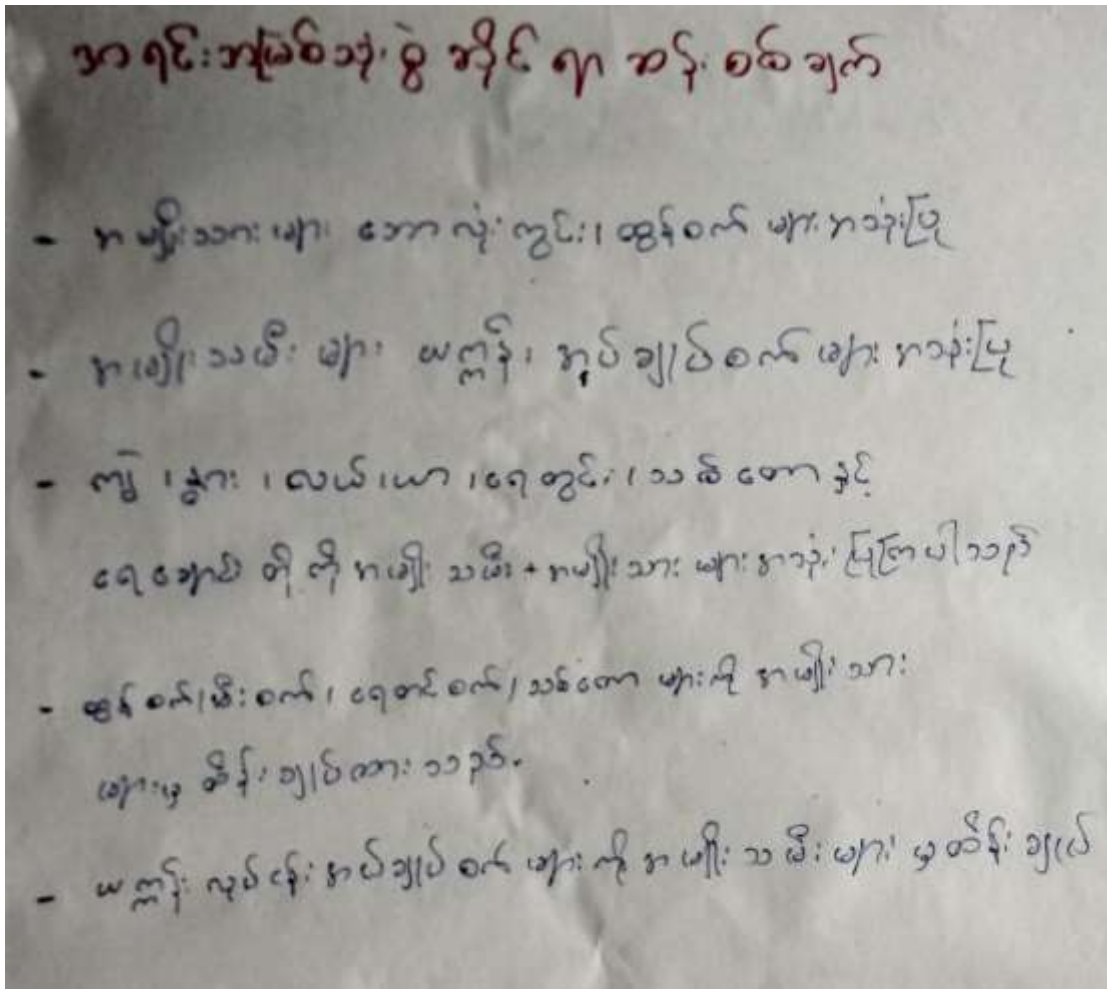 အရင်းအမြစ်သုံးစွဲဆိုင်ရာ ဆန်းစစ်ချက်
- အမျိုးသားများ ဘောလုံးကွင်း၊ ထွန်စက် များအသုံးပြု
- အမျိုးသမီးများ ယက္ကန်း၊ အပ်ချုပ်စက်များ အသုံးပြု
- ကျွဲ၊ နွား၊ လယ်၊ ယာ၊ ရေတွင်း၊ သစ်တော နှင့်
ရေချောင်း တို့ကို အမျိုးသမီး + အမျိုးသား များအသုံး ပြုကြပါသည်
- ထွန်စက်၊ မီးစက်၊ ရေတင်စက်၊ သစ်တော များကို အမျိုးသား
များမှ ထိန်းချုပ်ထားသည်.
- ယက္ကန်းလုပ်ငန်း အပ်ချုပ်စက်များကို အမျိုးသမီးများ မှထိန်းချုပ်